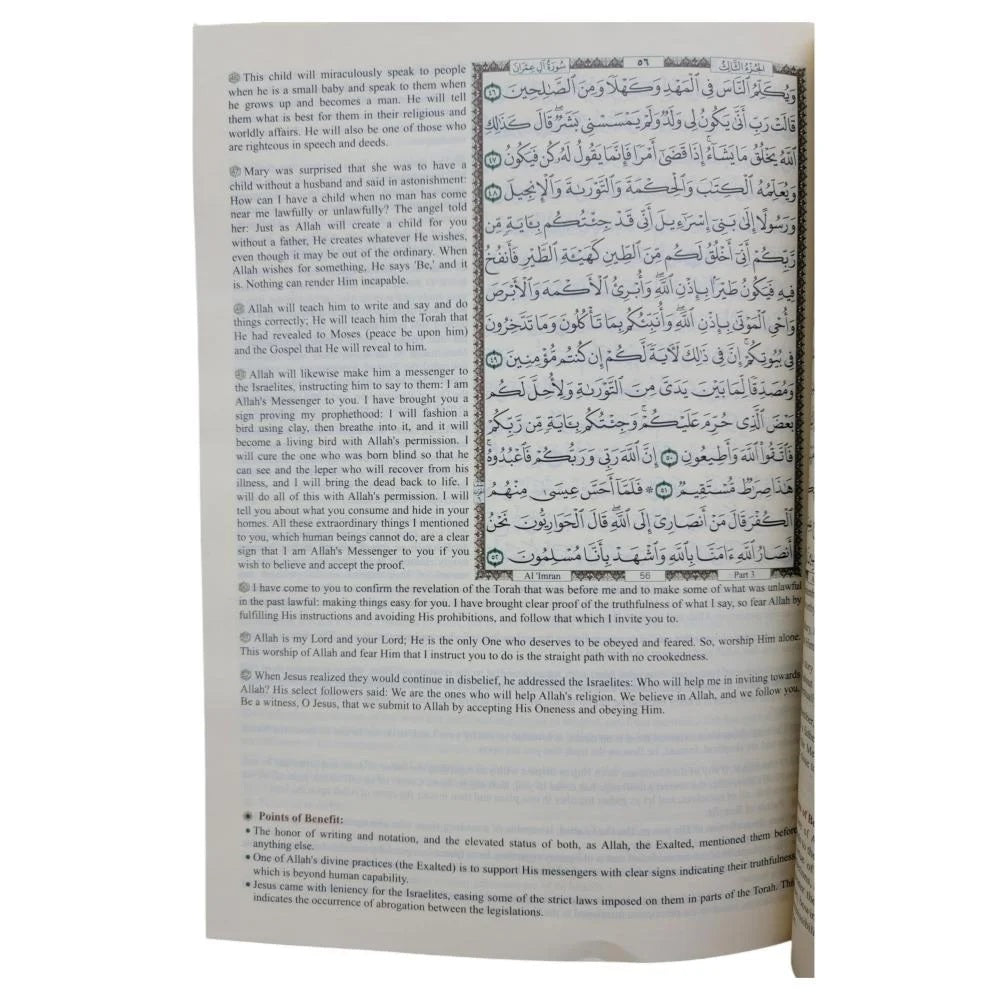 سُورَةُ آلِ عِمۡرَانَ
٥٦
الجُزۡءُ الثَّالِثُ
وَيُكَلِّمُ ٱلنَّاسَ فِي ٱلۡمَهۡدِ وَكَهۡلٗا وَمِنَ ٱلصَّٰلِحِينَ ٤٦
قَالَتۡ رَبِّ أَنَّىٰ يَكُونُ لِي وَلَدٞ وَلَمۡ يَمۡسَسۡنِي بَشَرٞۖ قَالَ كَذَٰلِكِ
ٱللَّهُ يَخۡلُقُ مَا يَشَآءُۚ إِذَا قَضَىٰٓ أَمۡرٗا فَإِنَّمَا يَقُولُ لَهُۥ كُن فَيَكُونُ ٤٧
وَيُعَلِّمُهُ ٱلۡكِتَٰبَ وَٱلۡحِكۡمَةَ وَٱلتَّوۡرَىٰةَ وَٱلۡإِنجِيلَ ٤٨
وَرَسُولًا إِلَىٰ بَنِيٓ إِسۡرَٰٓءِيلَ أَنِّي قَدۡ جِئۡتُكُم بِـَٔايَةٖ مِّن
رَّبِّكُمۡ أَنِّيٓ أَخۡلُقُ لَكُم مِّنَ ٱلطِّينِ كَهَيۡـَٔةِ ٱلطَّيۡرِ فَأَنفُخُ
فِيهِ فَيَكُونُ طَيۡرَۢا بِإِذۡنِ ٱللَّهِۖ وَأُبۡرِئُ ٱلۡأَكۡمَهَ وَٱلۡأَبۡرَصَ
وَأُحۡيِ ٱلۡمَوۡتَىٰ بِإِذۡنِ ٱللَّهِۖ وَأُنَبِّئُكُم بِمَا تَأۡكُلُونَ وَمَا تَدَّخِرُونَ
فِي بُيُوتِكُمۡۚ إِنَّ فِي ذَٰلِكَ لَأٓيَةٗ لَّكُمۡ إِن كُنتُم مُّؤۡمِنِينَ ٤٩
وَمُصَدِّقٗا لِّمَا بَيۡنَ يَدَيَّ مِنَ ٱلتَّوۡرَىٰةِ وَلِأُحِلَّ لَكُم
بَعۡضَ ٱلَّذِي حُرِّمَ عَلَيۡكُمۡۚ وَجِئۡتُكُم بِـَٔايَةٖ مِّن رَّبِّكُمۡ
فَٱتَّقُواْ ٱللَّهَ وَأَطِيعُونِ ٥٠ إِنَّ ٱللَّهَ رَبِّي وَرَبُّكُمۡ فَٱعۡبُدُوهُۚ
هَٰذَا صِرَٰطٞ مُّسۡتَقِيمٞ ٥١ ۞ فَلَمَّآ أَحَسَّ عِيسَىٰ مِنۡهُمُ
ٱلۡكُفۡرَ قَالَ مَنۡ أَنصَارِيٓ إِلَى ٱللَّهِۖ قَالَ ٱلۡحَوَارِيُّونَ نَحۡنُ
أَنصَارُ ٱللَّهِ ءَامَنَّا بِٱللَّهِ وَٱشۡهَدۡ بِأَنَّا مُسۡلِمُونَ ٥٢
Al 'Imran
56
Part 3
46 This child will miraculously speak to people
when he is a small baby and speak to them when
he grows up and becomes a man. He will tell
them what is best for them in their religious and
worldly affairs. He will also be one of those who
are righteous in speech and deeds.
47 Mary was surprised that she was to have a
child without a husband and said in astonishment:
How can I have a child when no man has come
near me lawfully or unlawfully? The angel told
her: Just as Allah will create a child for you
without a father, He creates whatever He wishes,
even though it may be out of the ordinary. When
Allah wishes for something, He says 'Be,' and it
is. Nothing can render Him incapable.
48 Allah will teach him to write and say and do
things correctly; He will teach him the Torah that
He had revealed to Moses (peace be upon him)
and the Gospel that He will reveal to him.
49 Allah will likewise make him a messenger to
the Israelites, instructing him to say to them: I am
Allah's Messenger to you. I have brought you a
sign proving my prophethood: I will fashion a
bird using clay, then breathe into it, and it will
become a living bird with Allah's permission. I
will cure the one who was born blind so that he
can see and the leper who will recover from his
illness, and I will bring the dead back to life. I
will do all of this with Allah's permission. I will
tell you about what you consume and hide in your
homes. All these extraordinary things I mentioned
to you, which human beings cannot do, are a clear
sign that I am Allah's Messenger to you if you
wish to believe and accept the proof.
50 I have come to you to confirm the revelation of the Torah that was before me and to make some of what was unlawful
in the past lawful: making things easy for you. I have brought clear proof of the truthfulness of what I say, so fear Allah by
fulfilling His instructions and avoiding His prohibitions, and follow that which I invite you to.
51 Allah is my Lord and your Lord; He is the only One who deserves to be obeyed and feared. So, worship Him alone.
This worship of Allah and fear Him that I instruct you to do is the straight path with no crookedness.
52 When Jesus realized they would continue in disbelief, he addressed the Israelites: Who will help me in inviting towards
Allah? His select followers said: We are the ones who will help Allah's religion. We believe in Allah, and we follow you.
Be a witness, O Jesus, that we submit to Allah by accepting His Oneness and obeying Him.
Points of Benefit:
• The honor of writing and notation, and the elevated status of both, as Allah, the Exalted, mentioned them before
anything else.
• One of Allah's divine practices (the Exalted) is to support His messengers with clear signs indicating their truthfulness,
which is beyond human capability.
• Jesus came with leniency for the Israelites, easing some of the strict laws imposed on them in parts of the Torah. This
indicates the occurrence of abrogation between the legislations.